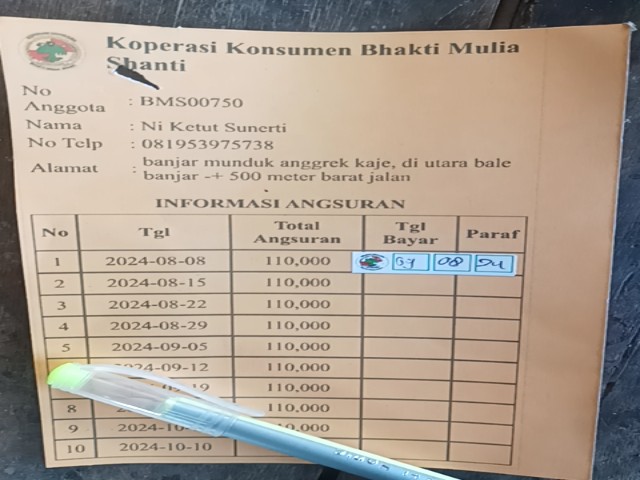 Koperasi Konsumen Bhakti Mulia
Shanti
No
Anggota : BMS00750
Nama : Ni Ketut Sunerti
No Telp : 081953975738
Alamat : banjar munduk anggrek kaje, di utara bale
banjar -+ 500 meter barat jalan
INFORMASI ANGSURAN
No Tgl Total Angsuran Tgl Bayar Paraf
1 2024-08-08 110,000 08 24
2 2024-08-15 110,000
3 2024-08-22 110,000
4 2024-08-29 110,000
5 2024-09-05 110,000
2024-09-12 110,000
19 110,000
8 110,000
9
10 2024-10-10